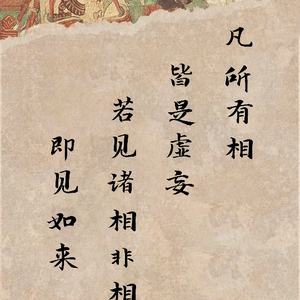 凡所有相
皆是虚妄
若见诸相非相
即见如来